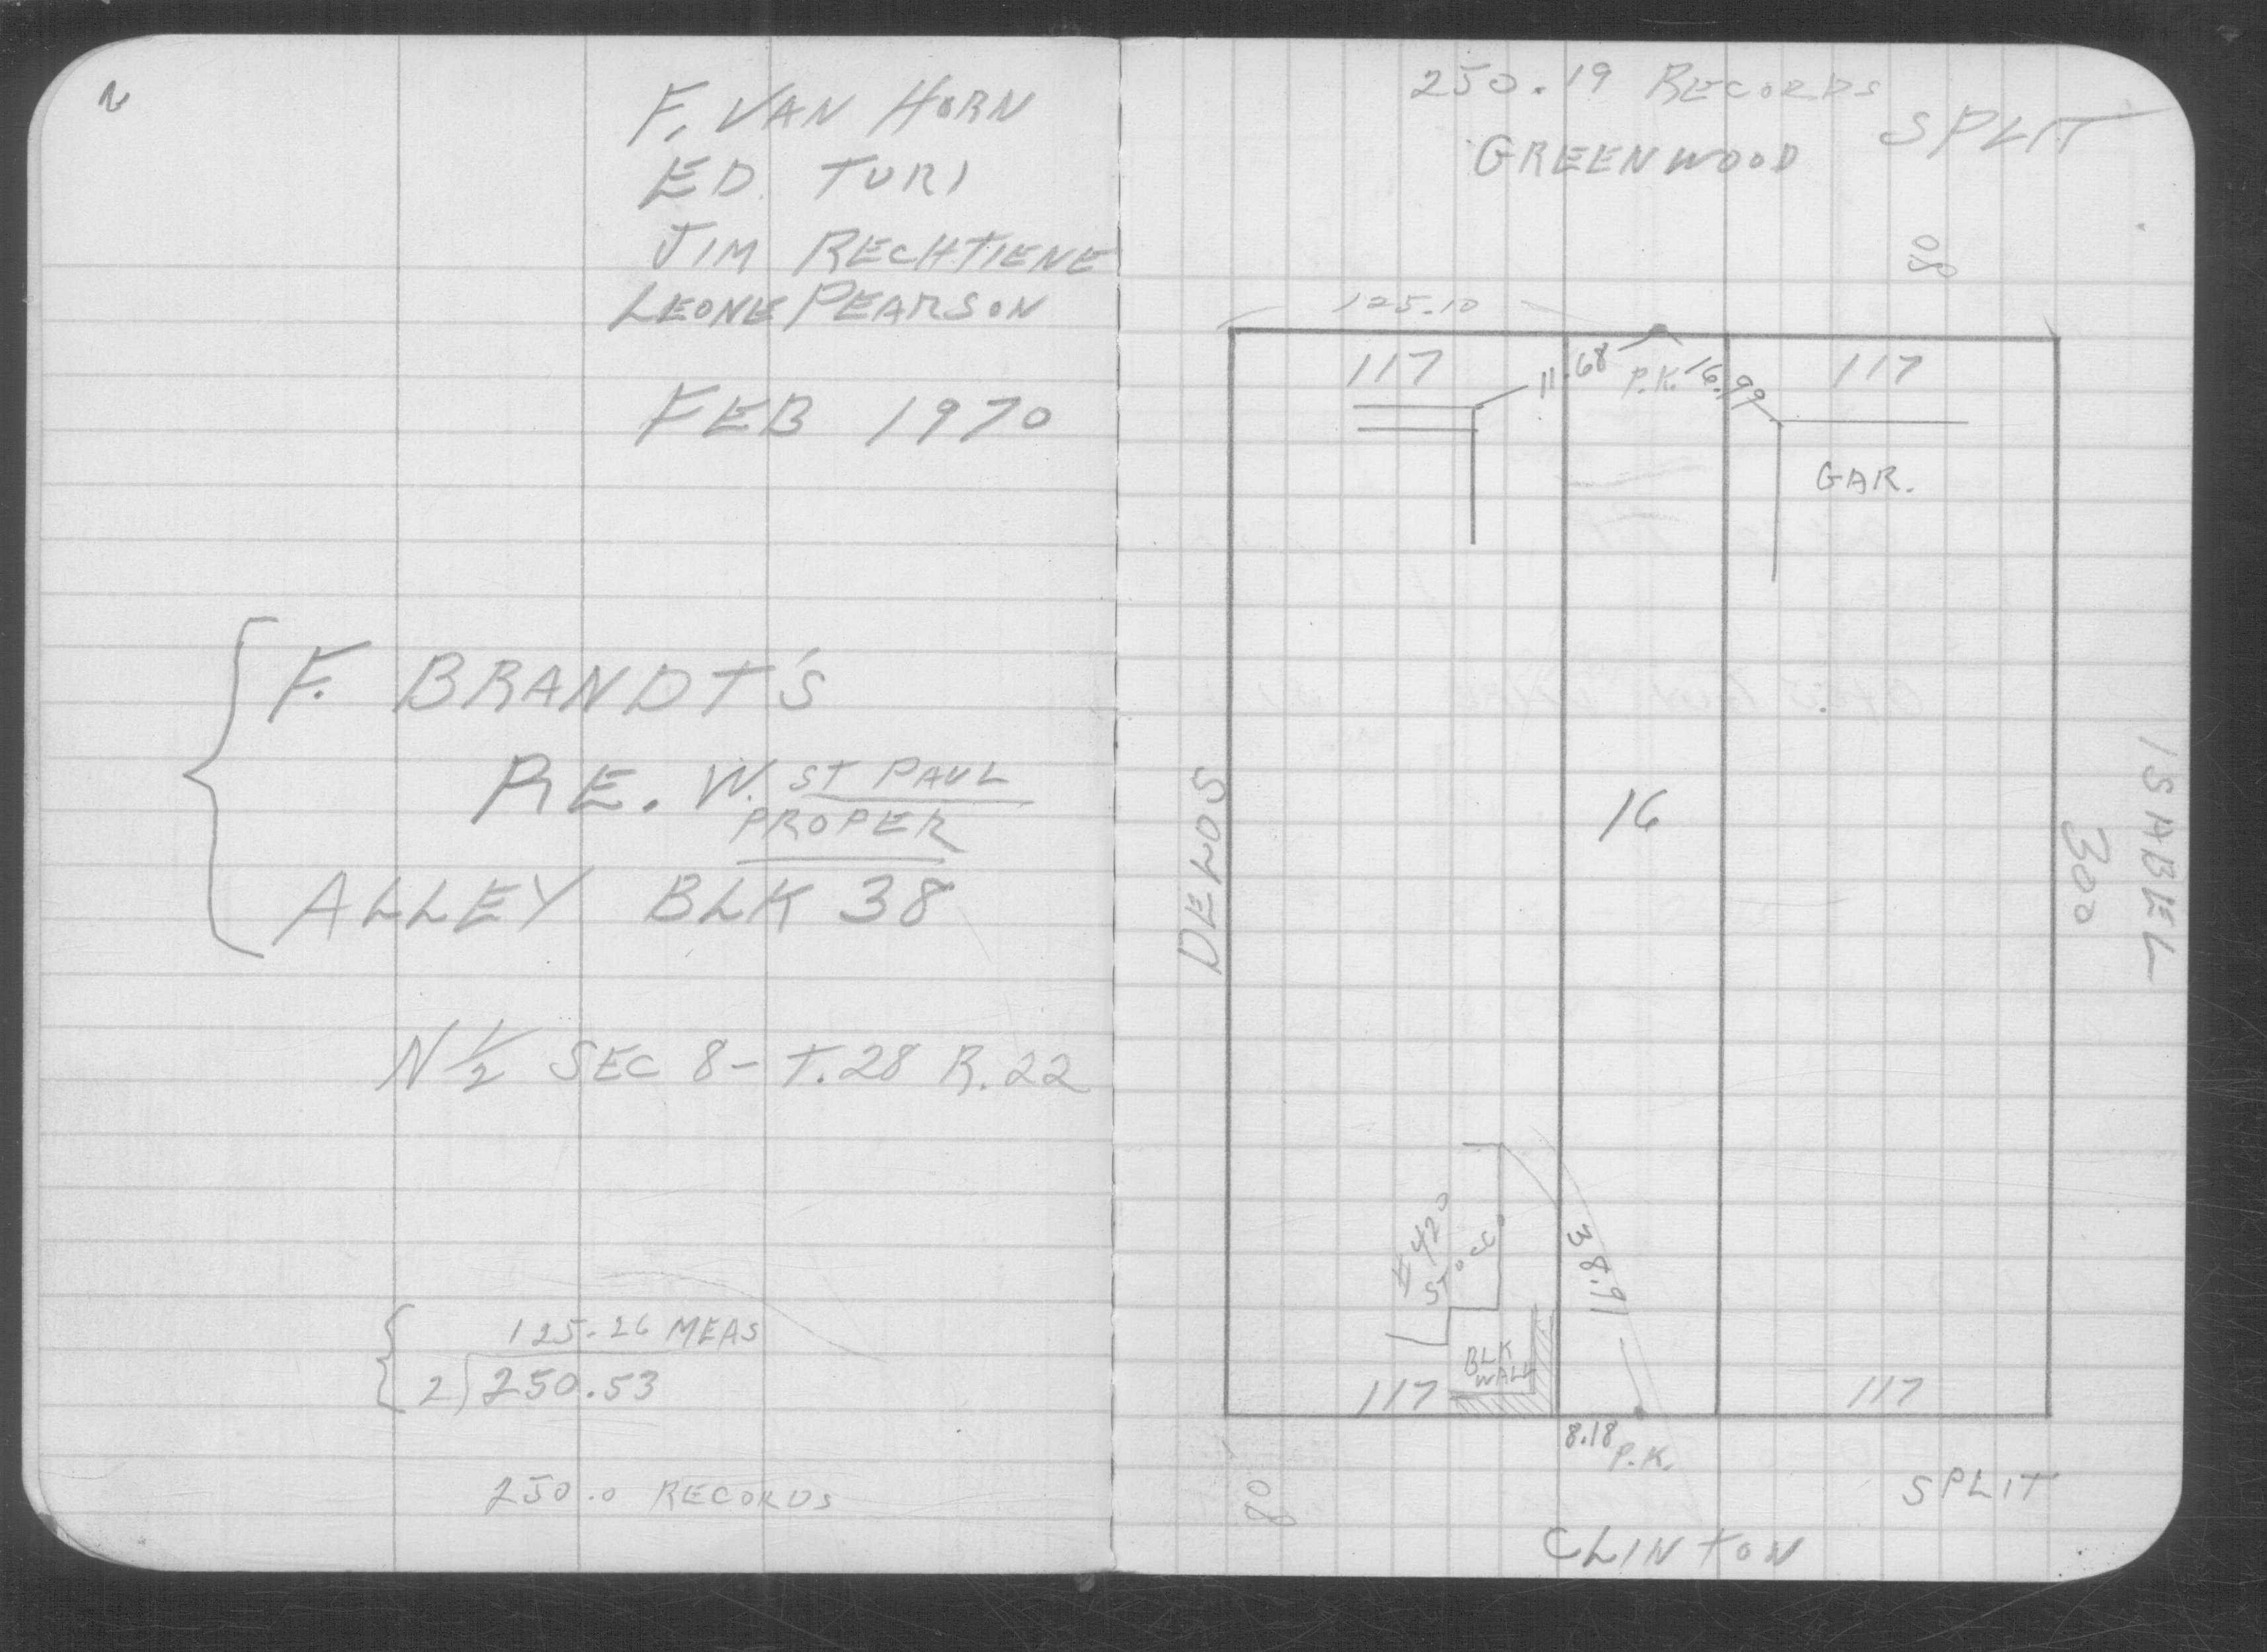 2
F. VAN HORN
ED. TURI
JIM RECHTIENE
LEONE PEARSON
FEB 1970
F. BRANDT'S
RE. W. ST PAUL
PROPER
ALLEY BLK 38
N 1/2 SEC 8 - T.28 R.22
125.26 MEAS
2)250.53
250.0 RECORDS
250.19 RECORDS
SPLIT
GREENWOOD
80
125.10
117
11.68
P.K.
16.99
117
GAR.
DELOS
16
300
ISABEL
#420
STUCCO
38.91
BLK
WALL
117
117
8.18
P.K.
80
SPLIT
CLINTON